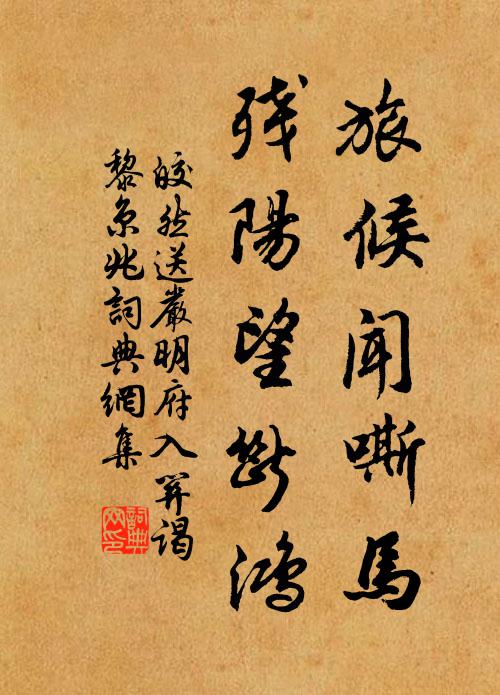 旅候聞嘶馬
殘陽望斷鴻
皎然送嚴明府入關謁
黎京兆詞典網集
詞典网印